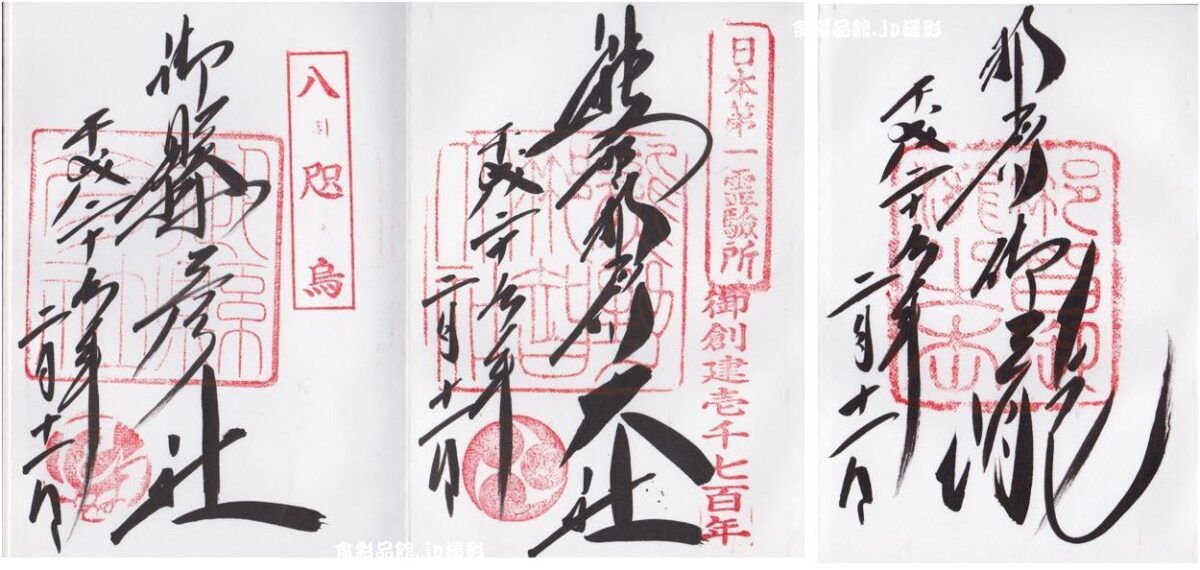 食彩品館.jp撮影
八咫烏
御縣彦社
平成二十九年
二月十一日
日本第一霊驗所
御創建壱千七百年
熊野那智大社
平成二十九年
二月十一日
那智御瀧
平成二十九年
二月十一日
食彩品館.jp撮影